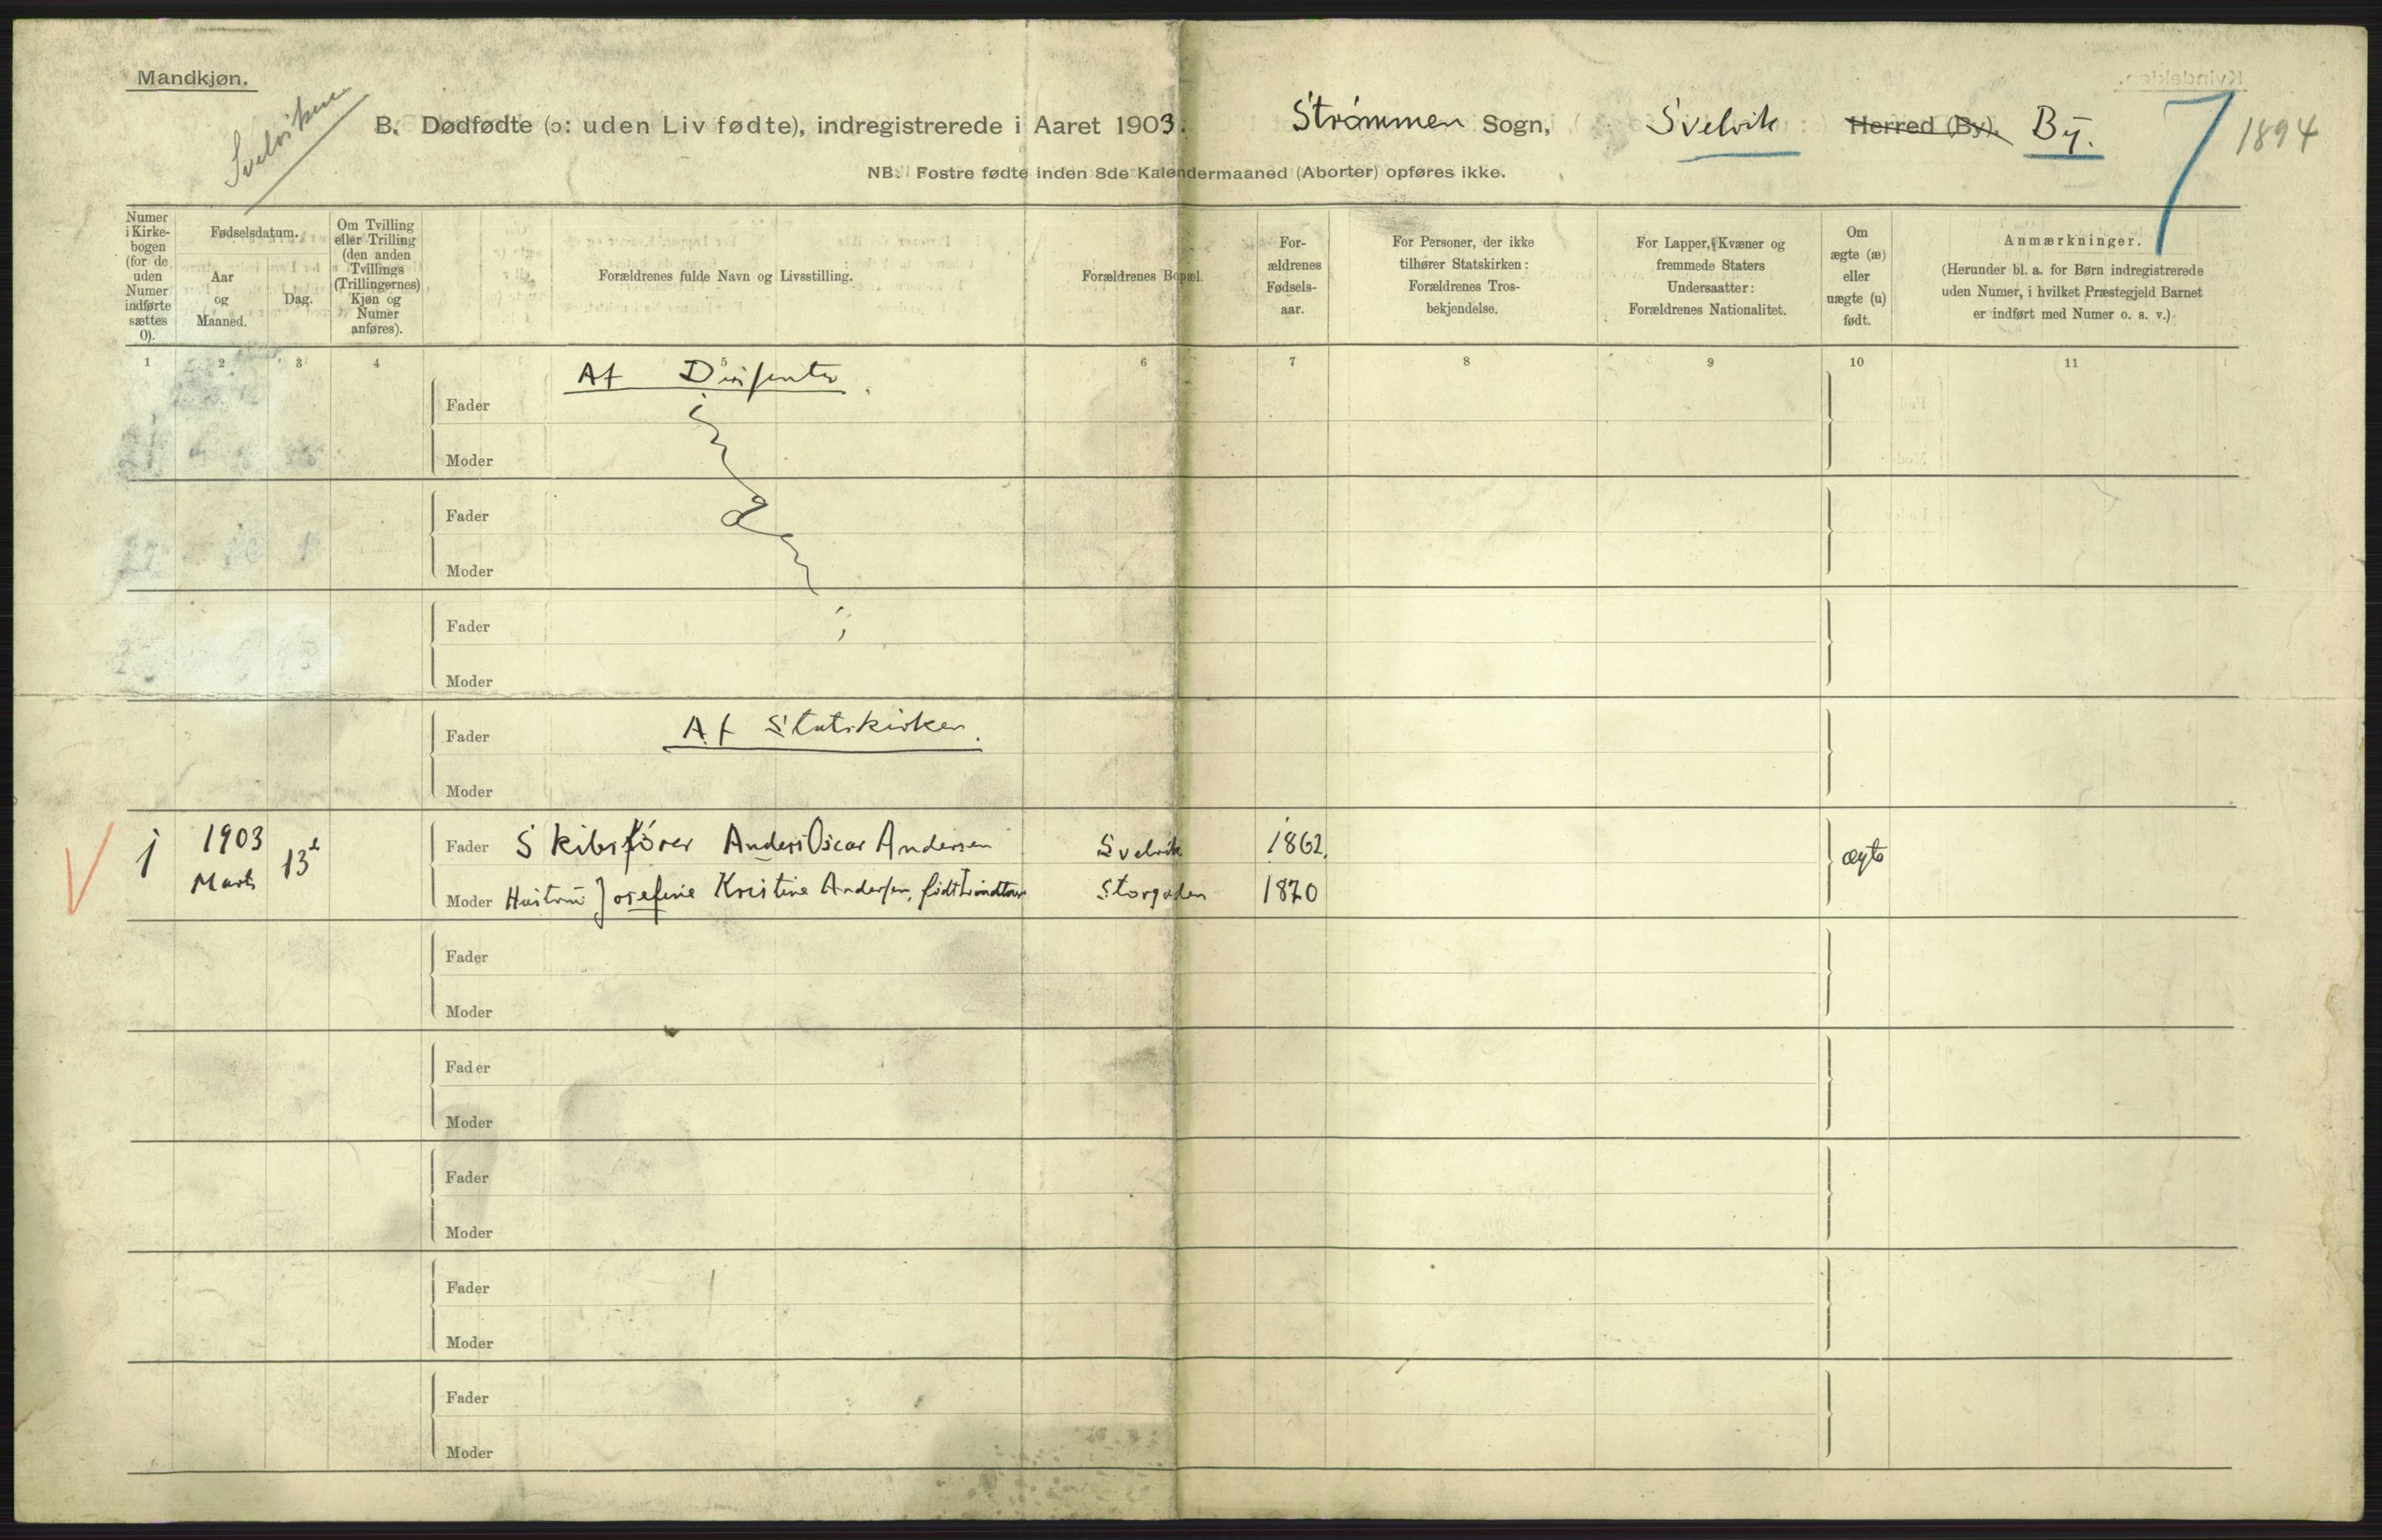 Mandkjøn.
Svelviken
B. Dødfødte (ɔ: uden Liv fødte), indregistrerede i Aaret 1903. Strømmen Sogn, Svelvik Herred (By). By.
7
1894
NB. Fostre fødte inden 8de Kalendermaaned (Aborter) opføres ikke.
Numer
i Kirke-
bogen
(for de
uden
Numer
indførte
sættes
0).
Fødselsdatum.
Aar
og
Maaned.
Dag.
Om Tvilling
eller Trilling
(den anden
Tvillings
(Trillingernes)
Kjøn og
Numer
anføres).
Forældrenes fulde Navn og Livsstilling.
Forældrenes Bopæl.
For-
ældrenes
Fødsels-
aar.
For Personer, der ikke
tilhører Statskirken:
Forældrenes Tros-
bekjendelse.
For Lapper, Kvæner og
fremmede Staters
Undersaatter:
Forældrenes Nationalitet.
Om
ægte (æ)
eller
uægte (u)
født.
Anmærkninger.
(Herunder bl. a. for Børn indregistrerede
uden Numer, i hvilket Præstegjeld Barnet
er indført med Numer o. s. v.)
1 2 3 4 5 6 7 8 9 10 11
Af Dissenter.
Fader
Moder
Fader
Moder
Fader
Moder
Fader Af Statskirken.
Moder
1 1903 Marts 13de
Fader Skibsfører Anders Oscar Andersen Svelvik 1862. ægte
Moder Hustru Josefine Kristine Andersen, født Storgaden 1870
Fader
Moder
Fader
Moder
Fader
Moder
Fader
Moder
Fader
Moder